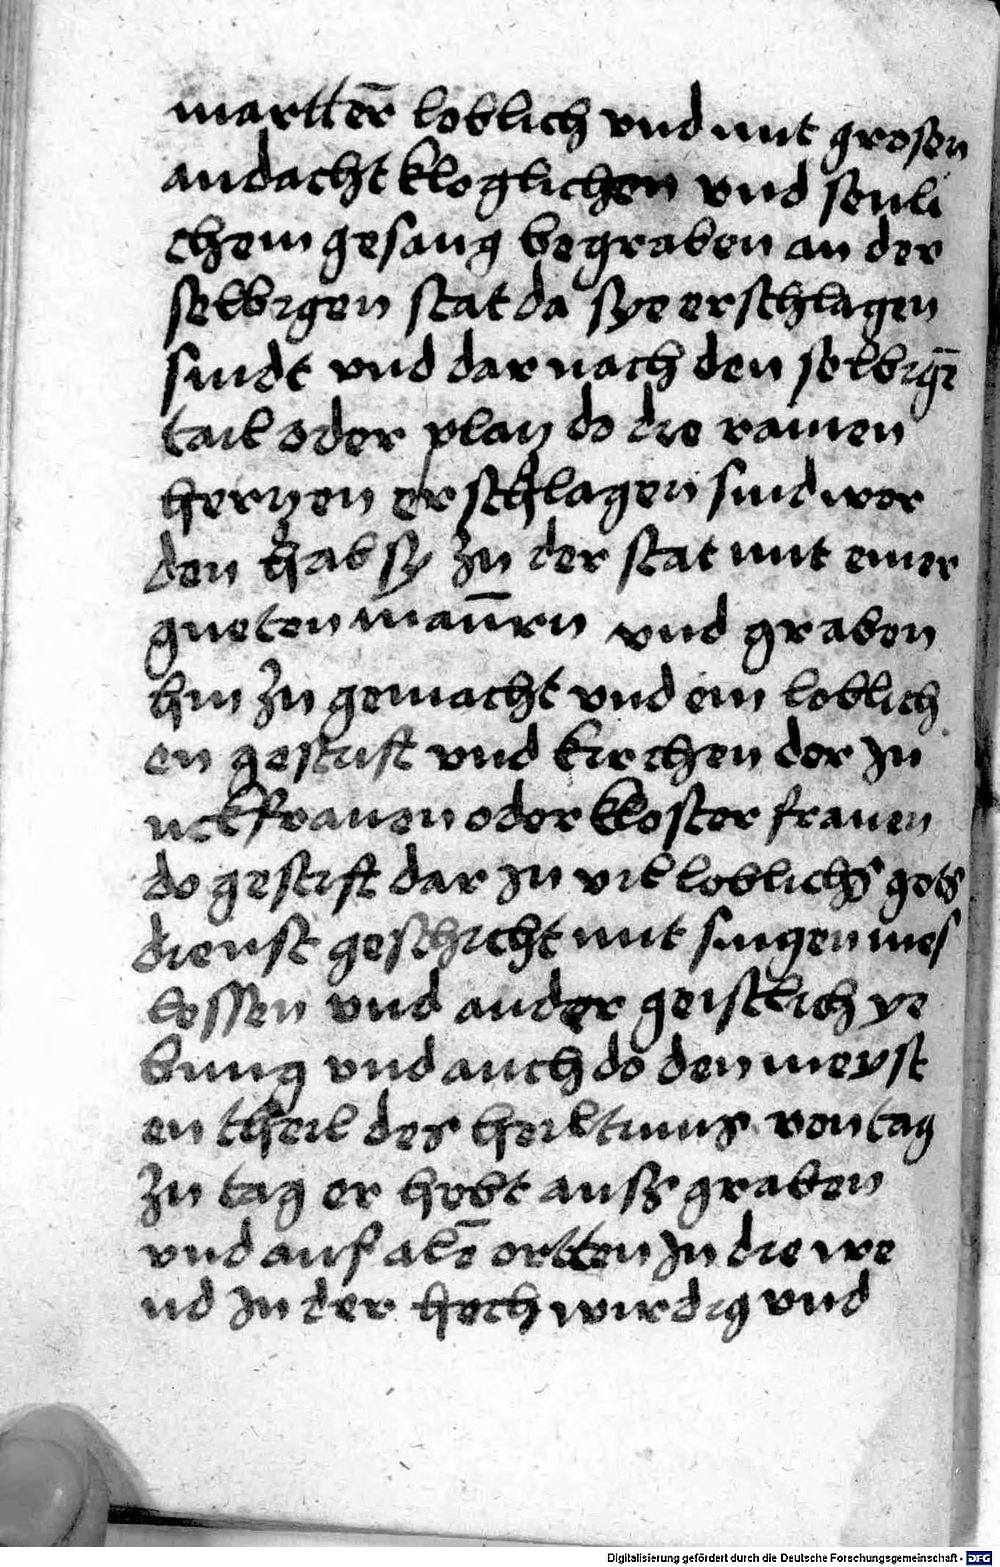 martter̄ loblich vnd mit grosen
andacht kloglichen vnd senli
chem gesang begraben an der
selbigen stat da sye erschlagen
sindt vnd dar nach den selbigē
tail oder plan do die rainen
heryen erschlagen sind wor
den hab sy zu der stat mit einer
gueten maūrn vnd graben
hin zu gemacht vnd ein loblich
en gestift vnd kirchen der zu
nckfrauen oder kloster frauen
do gestift dar zu vil loblichs gots
dienst geschicht mit singen mes
lessen vnd ander geistlich ye
bung vnd auch do den meyst
en theil des heiltums von tag
zu tag er hebt ausz graben
vnd auf alē ortten zu die we
nd zu der hoch wirdig vnd
Digitalisierung gefördert durch die Deutsche Forschungsgemeinschaft - DFG